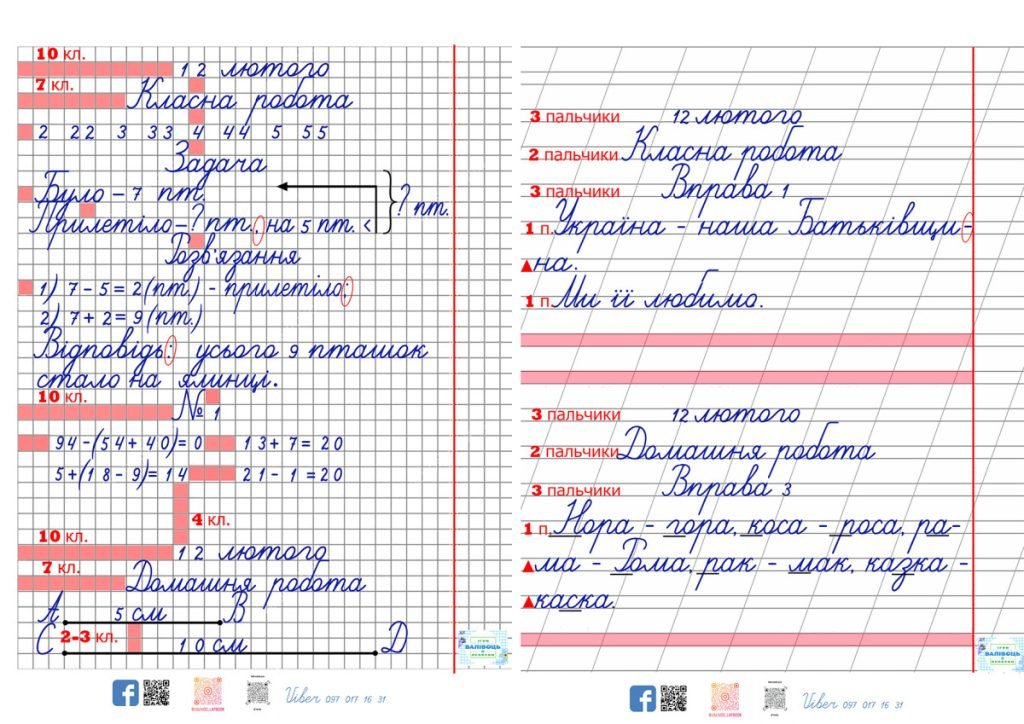 10 кл.
12 лютого
7 кл.
Класна робота
2 22 3 33 4 44 5 55
Задача
Було – 7 пт.
? пт.
Прилетіло – ? пт., на 5 пт. <
Розв'язання
1) 7 – 5 = 2 (пт.) – прилетіло;
2) 7 + 2 = 9 (пт.)
Відповідь: усього 9 пташок
стало на ялинці.
10 кл.
№ 1
94 – (54 + 40) = 0 13 + 7 = 20
5 + (18 – 9) = 14 21 – 1 = 20
4 кл.
10 кл.
12 лютого
7 кл.
Домашня робота
А 5 см В
С 2-3 кл. 10 см D
ВАЛІВОЦЬ
Viber 097 017 16 31
3 пальчики 12 лютого
2 пальчики Класна робота
3 пальчики Вправа 1
1 п. Україна – наша Батьківщи-
на.
1 п. Ми її любимо.
3 пальчики 12 лютого
2 пальчики Домашня робота
3 пальчики Вправа 3
1 п. Нора – гора, коса – роса, ра-
ма – Рома, рак – мак, казка –
каска.
ВАЛІВОЦЬ
Viber 097 017 16 31